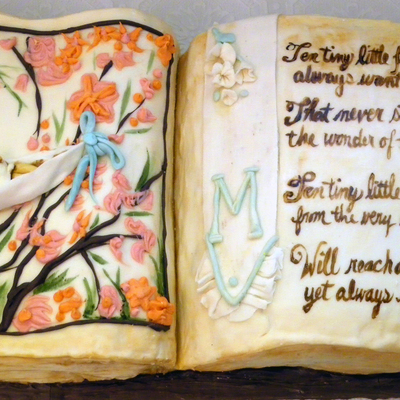 M
Ten tiny little
always want
That never s
the wonder of
Ten tiny little
from the very
Will reach
yet always